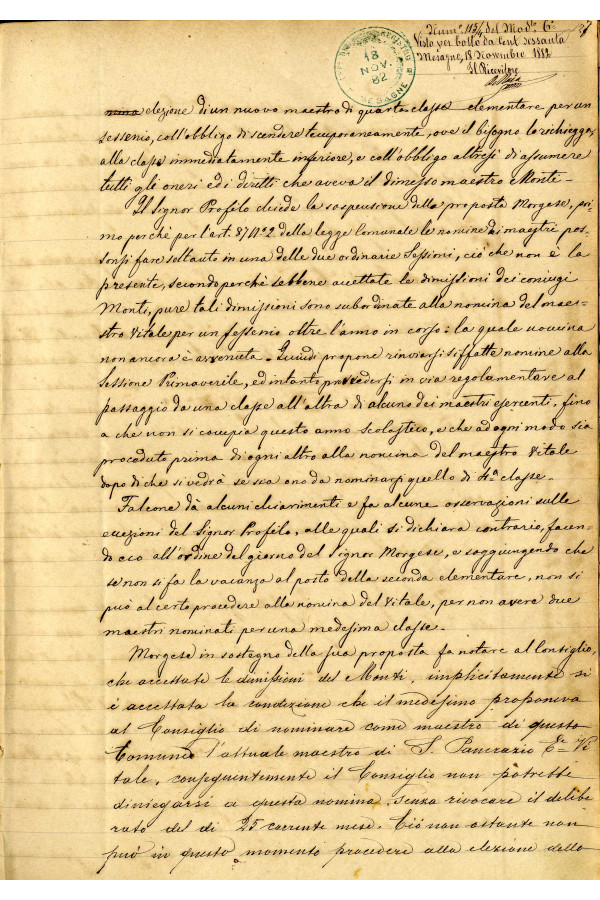 Num.° 1134 del Mod.° 6°
Visto per bollo da Cent. sessanta
Mesagne, 18 Novembre 1882
Il Ricevitore
18
NOV.
82
MESAGNE
elezione di un nuovo maestro di quarta classe elementare per un
sessenio, coll'obbligo di scendere temporaneamente, ove il bisogno lo richiegga,
alla classe immediatamente inferiore, e coll'obbligo altresì di assumere
tutti gli oneri ed i diretti che aveva il dimesso maestro Monti-
Il Signor Profilo chiede la sospensione della proposta Morgese, pri-
mo perchè per l'art. 87 N° 2 della legge Comunale le nomine di maestri pos-
sonsi fare soltanto in una delle due ordinarie Sessioni, ciò che non è la
presente, secondo perchè sebbene accettate le dimissioni dei coniugi
Monti, pure tali dimissioni sono subordinate alla nomina del mae-
stro Vitale per un sessenio oltre l'anno in corso: la quale nomina
non ancora è avvenuta - Quindi propone rinviarsi siffatte nomine alla
Sessione Primaverile, ed intanto provvedersi in via regolamentare al
passaggio da una classe all'altra di alcuno dei maestri esercenti, fino
a che non si compia questo anno scolastico, e che ad ogni modo sia
proceduto prima di ogni altro alla nomina del maestro Vitale
dopo di che si vedrà se sia o no da nominarsi quello di 4ª classe-
Falcone dà alcuni chiarimenti e fa alcune osservazioni sulle
eccezioni del Signor Profilo, alle quali si dichiara contrario, facen-
do eco all'ordine del giorno del Signor Morgese, e soggiungendo che
se non si fa la vacanza al posto della seconda elementare, non si
può al certo procedere alla nomina del Vitale, per non avere due
maestri nominati per una medesima classe-
Morgese in sostegno della sua proposta fa notare al Consiglio,
che accettate le dimissioni del Monti, implicitamente si
è accettata la condizione che il medesimo proponeva
al Consiglio di nominare come maestro di questo
Comune l'attuale maestro di S. Pancrazio Vi
tale, conseguentemente il Consiglio non potrebbe
diniegarsi a questa nomina, senza rivocare il delibe
rato del di 25 corrente mese. Ciò non ostante non
può in questo momento procedere alla elezione dello